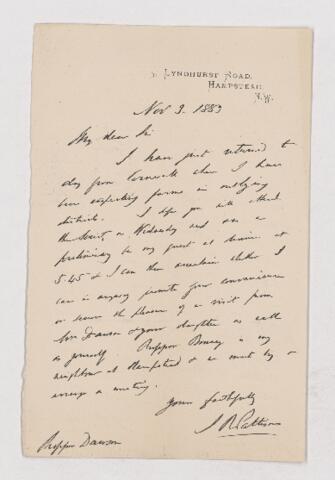 LYNDHURST ROAD,
HAMPSTEAD
N.W.
Nov 3. 1883
My dear Sir
I have just returned to
day from Cornwall where I have
been inspecting farms in outlying
districts. I hope you will attend
the Society on Wednesday and as a
preliminary be my guest at dinner at
5.45 & I can then ascertain whether I
can in anyway promote your convenience
or secure the pleasure of a visit from
Mrs Dawson & your daughter as well
as yourself. Professor Bonney is my
neighbour at Hampstead & we must try &
arrange a meeting.
Yours faithfully
S R Pattison
Professor Dawson